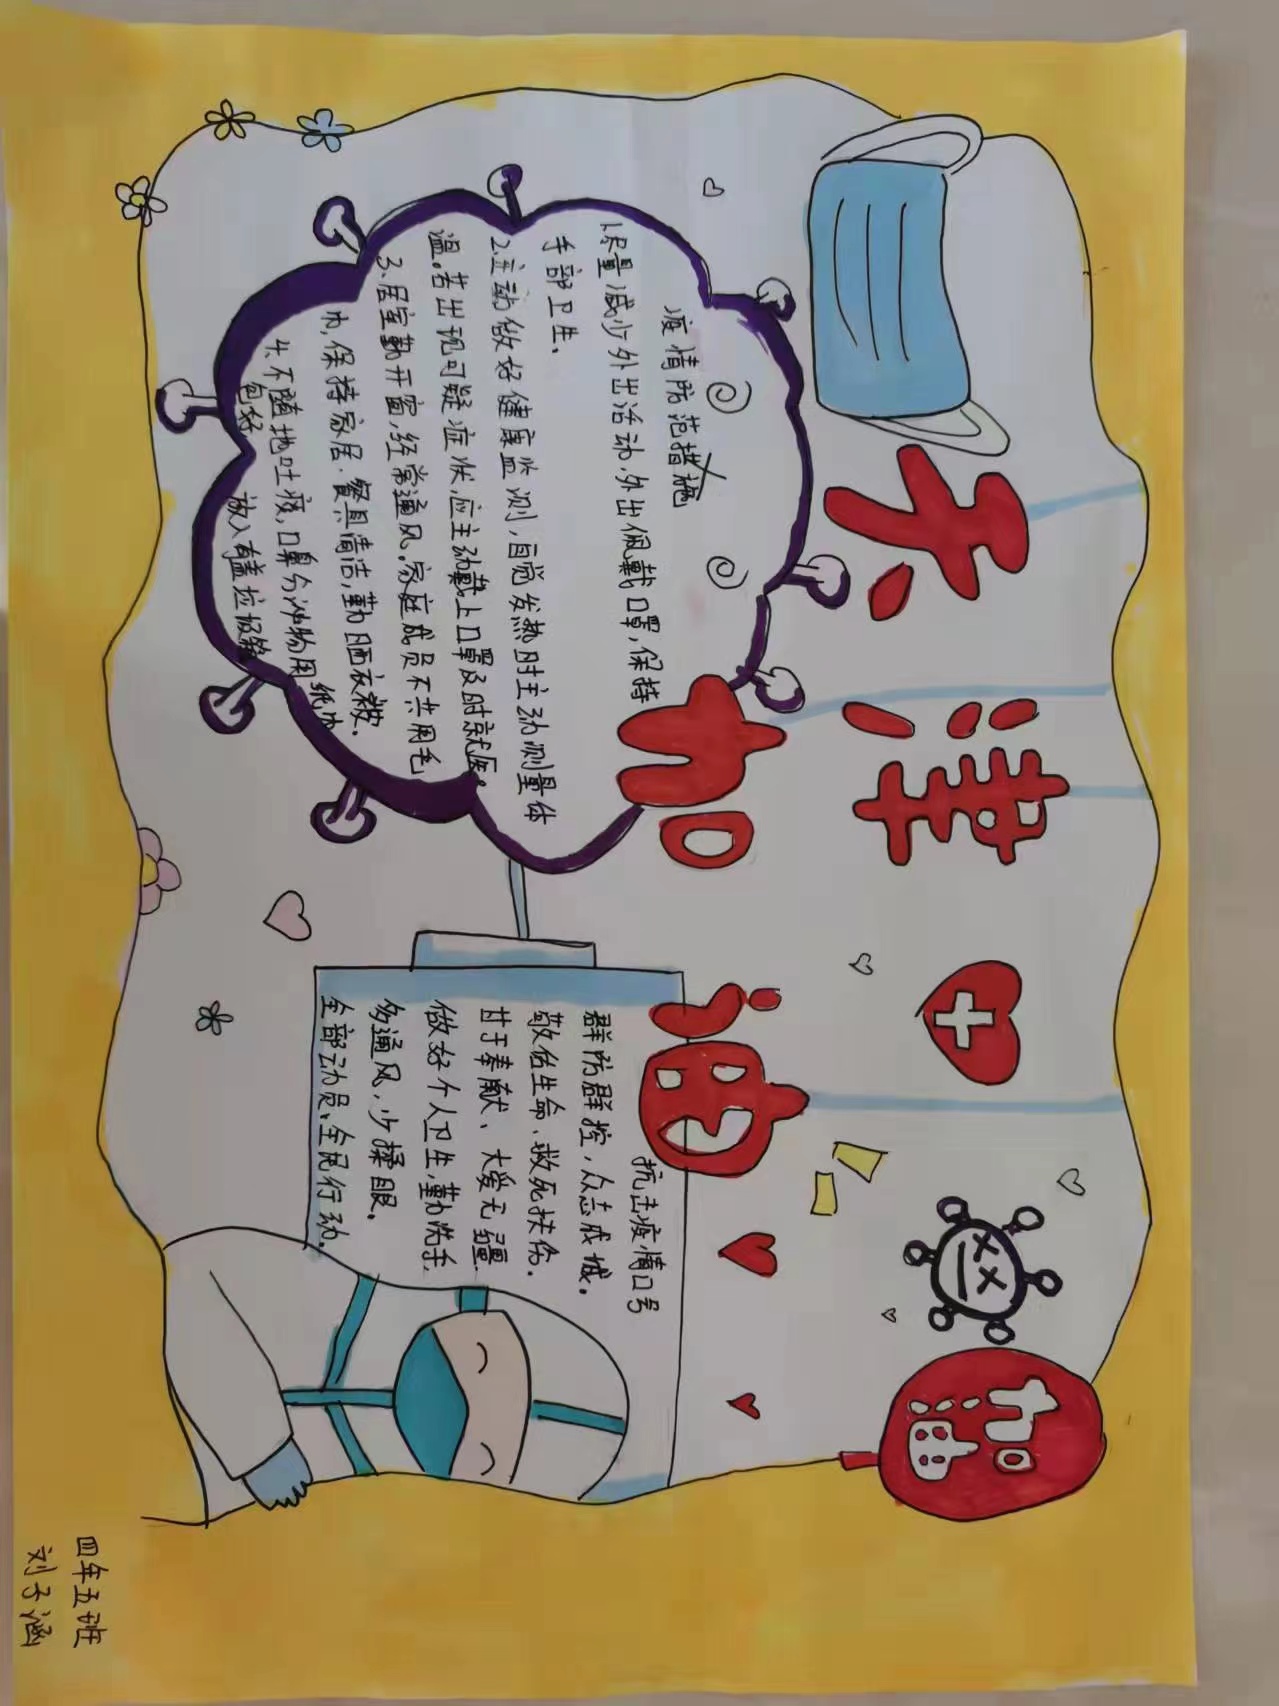 天津
加油
疫情防范措施
1.尽量减少外出活动,外出佩戴口罩,保持
手部卫生。
2.主动做好健康监测,自觉发热时主动测量体
温。若出现可疑症状,应主动戴上口罩及时就医。
3.居室勤开窗,经常通风。家庭成员不共用毛
巾,保持家居、餐具清洁,勤晒衣被。
4.不随地吐痰,口鼻分泌物用纸巾
包好 放入有盖垃圾箱
抗击疫情口号
群防群控,众志成城。
敬佑生命、救死扶伤。
甘于奉献、大爱无疆
做好个人卫生,勤洗手,
多通风,少揉眼。
全部动员、全民行动。
加油
四年五班
刘子涵